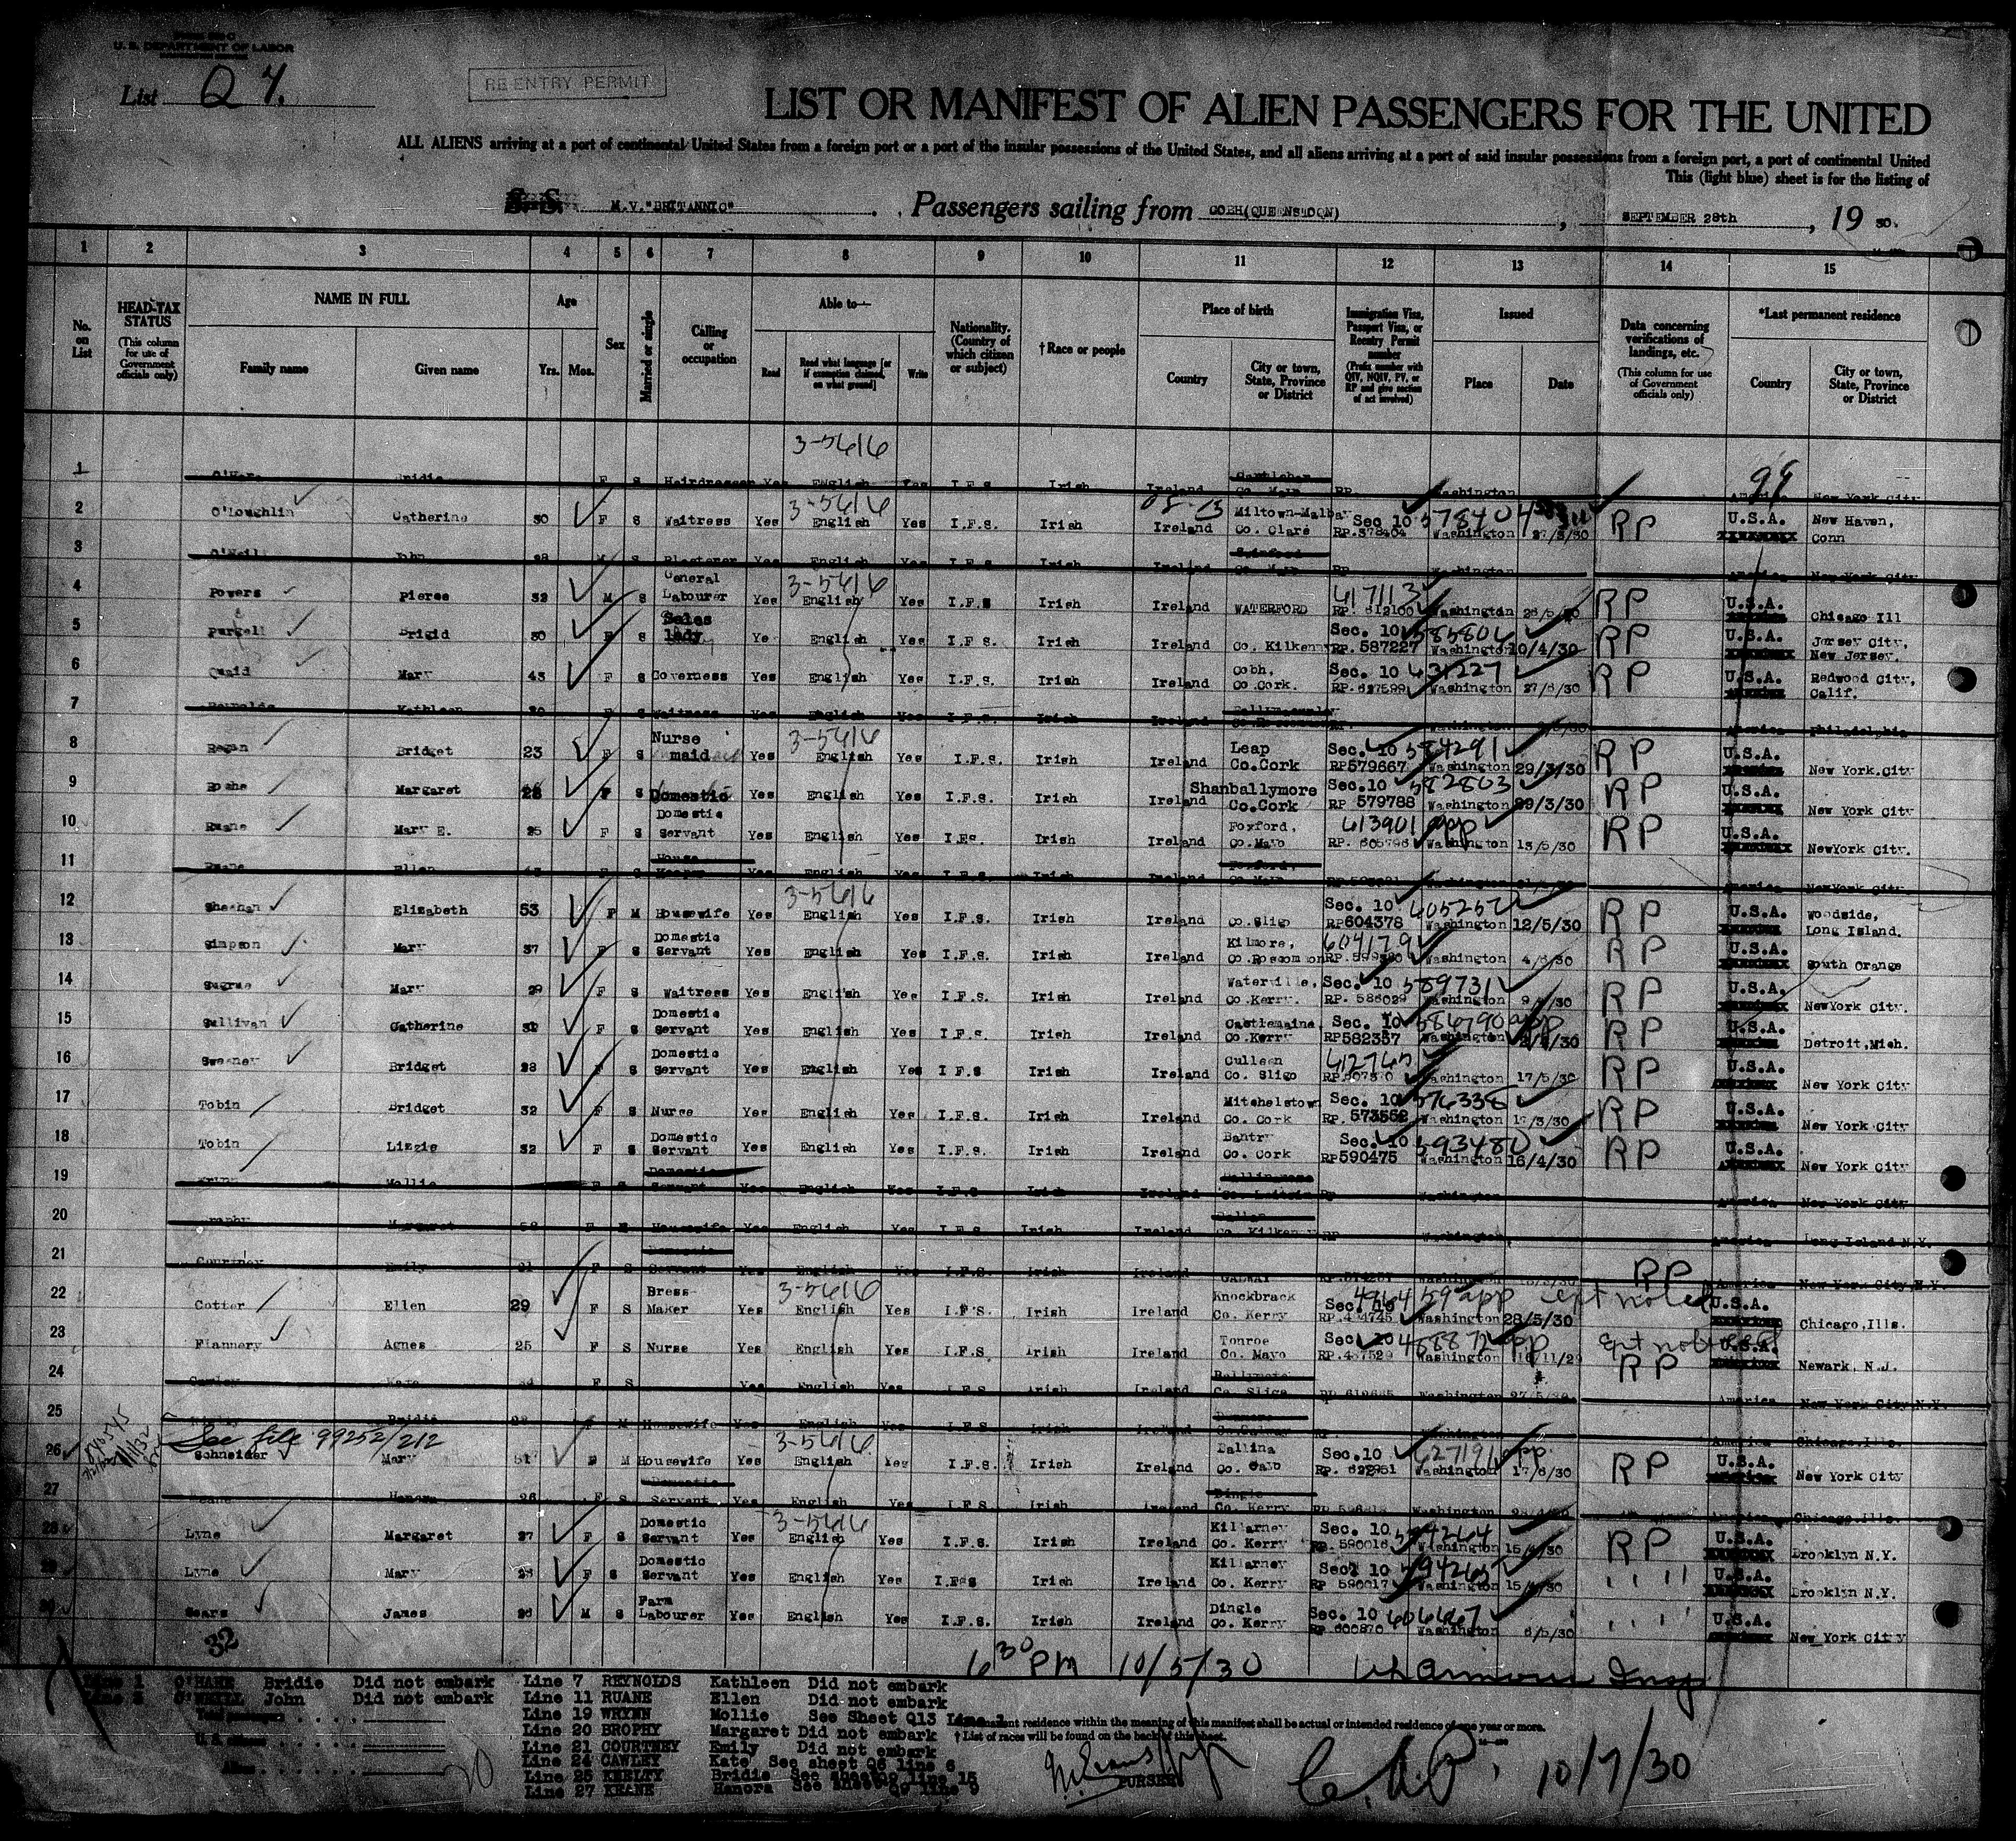 U. S. DEPARTMENT OF LABOR
List Q 7.
RE ENTRY PERMIT
LIST OR MANIFEST OF ALIEN PASSENGERS FOR THE UNITED
ALL ALIENS arriving at a port of continental United States from a foreign port or a port of the insular possessions of the United States, and all aliens arriving at a port of said insular possessions from a foreign port, a port of continental United
This (light blue) sheet is for the listing of
S. S. M.V. "BRITANNIC" Passengers sailing from COBH(QUEENSTOWN), SEPTEMBER 28th, 19 30.
1 2 3 4 5 6 7 8 9 10 11 12 13 14 15
No. on List
HEAD-TAX STATUS (This column for use of Government officials only)
NAME IN FULL Family name Given name
Age Yrs. Mos.
Sex
Married or single
Calling or occupation
Able to— Read Read what language [or if exemption claimed, on what ground] Write
Nationality. (Country of which citizen or subject)
†Race or people
Place of birth Country City or town, State, Province or District
Immigration Visa, Passport Visa, or Reentry Permit number (Prefix number with QIV, NQIV, PV, or RP and give section of act involved)
Issued Place Date
Data concerning verifications of landings, etc. (This column for use of Government officials only)
*Last permanent residence Country City or town, State, Province or District
3-5616
1 O'Hara Bridie F S Hairdresser Yes English Yes I.F.S. Irish Ireland Co. Mayo RP. Washington America New York City
99
2 O'Loughlin Catherine 30 F S Waitress Yes English Yes I.F.S. Irish Ireland Miltown-Malbay Co. Clare Sec 10 578404 RP.378404 Washington 27/3/30 RP U.S.A. New Haven, Conn
3 O'Neill John 28 M S Plasterer Yes English Yes I.F.S. Irish Ireland Swinford Co. Mayo RP Washington America New York City
4 Powers Pierce 32 M S General Labourer Yes 3-5616 English Yes I.F.S Irish Ireland WATERFORD 617113 RP. 612100 Washington 26/5/30 RP U.S.A. Chicago Ill
5 Purcell Brigid 30 F S Sales lady Ye English Yes I.F.S. Irish Ireland Co. Kilkenny Sec. 10 585806 RP. 587227 Washington 10/4/30 RP U.S.A. Jersey City, New Jersey.
6 Quaid Mary 43 F S Governess Yes English Yes I.F.S. Irish Ireland Cobh, Co Cork. Sec. 10 631227 RP.627599 Washington 27/6/30 RP U.S.A. Redwood City, Calif.
7 Reynolds Kathleen F S Waitress Yes English Yes I.F.S. Irish Ireland Washington America Philadelphia
8 Regan Bridget 23 F S Nurse maid Yes 3-5616 English Yes I.F.S. Irish Ireland Leap Co.Cork Sec. 10 584291 RP579667 Washington 29/3/30 RP U.S.A. New York.City
9 Roche Margaret F S Domestic Yes English Yes I.F.S. Irish Ireland Shanballymore Co.Cork Sec.10 582803 RP 579788 Washington 29/3/30 RP U.S.A. New York City
10 Ruane Mary E. 25 F S Domestic Servant Yes English Yes I.FS. Irish Ireland Foxford, Co.Mayo 613901 app RP. 605796 Washington 13/5/30 RP U.S.A. NewYork City.
11 Ruane Ellen F S House Keeper Yes English Yes I.F.S. Irish Ireland Foxford, Co Mayo Washington America New York City
12 Sheehan Elizabeth 53 F M Housewife Yes 3-5616 English Yes I.F.S. Irish Ireland Co.Sligo Sec. 10 605252 RP604378 Washington 12/5/30 RP U.S.A. Woodside, Long Island.
13 Simpson Mary 37 F S Domestic Servant Yes English Yes I.F.S. Irish Ireland Kilmore, Co.Roscommon 604179 Washington RP U.S.A. South Orange
14 Sugrue Mary 29 F S Waitress Yes English Yes I.F.S. Irish Ireland Waterville, Co.Kerry. Sec. 10 589731 RP. 586029 Washington RP U.S.A. NewYork City.
15 Sullivan Catherine F S Domestic Servant Yes English Yes I.F.S. Irish Ireland Castlemaine, Co.Kerry Sec. 10 586790 app RP582357 Washington RP U.S.A. Detroit,Mich.
16 Sweeney Bridget 28 F S Domestic Servant Yes English Yes I F S Irish Ireland Culleen Co. Sligo 612765 Washington 17/5/30 RP U.S.A. New York City
17 Tobin Bridget 32 F S Nurse Yes English Yes I.F.S. Irish Ireland Mitchelstown Co. Cork Sec. 10 576338 RP. 573552 Washington RP U.S.A. New York City
18 Tobin Lizzie 32 F S Domestic Servant Yes English Yes I.F.S. Irish Ireland Bantry Co. Cork Sec. 10 593480 RP590475 Washington 16/4/30 RP U.S.A. New York City
19 Mollie F S Domestic Servant Yes English Yes I.F.S Irish Ireland Co. Leitrim Washington America New York City
20 Margaret F M Housewife Yes English Yes I.F.S Irish Ireland Co. Kilkenny RP Washington America Long Island N.Y.
21 Courtney Emily 21 F S Domestic Servant Yes English Yes I.F.S. Irish Ireland GALWAY Washington RP America New York City,N.Y.
22 Cotter Ellen 29 F S Dress Maker Yes 3-5616 English Yes I.F.S. Irish Ireland Knockbrack Co. Kerry Sec. 10 496459 app Washington 28/5/30 ept noted U.S.A. Chicago,Ills.
23 Flannery Agnes 25 F S Nurse Yes English Yes I.F.S. Irish Ireland Tonroe Co. Mayo Sec. 10 468872 app RP.467529 Washington 16/11/29 ept noted RP U.S.A. Newark, N.J.
24 Cawley Kate F S Yes English Yes I.F.S Irish Ireland Ballymote Co. Sligo Washington 27/5/30 America New York City N.Y.
25 Bridie F M Housewife Yes English Yes I.F.S. Irish Ireland Co.Galway Washington America Chicago.Ills.
See file 99252/212
26 Schneider Mary 51 F M Housewife Yes 3-5616 English Yes I.F.S. Irish Ireland Ballina Co. Mayo Sec.10 627191 app RP. 622951 Washington 17/6/30 RP U.S.A. New York City
27 Keane Hanora 26 F S Domestic Servant Yes English Yes I.F.S Irish Ireland Dingle Co. Kerry Washington America Chicago.Ills.
28 Lyne Margaret 27 F S Domestic Servant Yes 3-5616 English Yes I.F.S. Irish Ireland Killarney Co. Kerry Sec. 10 594264 RP. 590016 Washington 15/4/30 RP U.S.A. Brooklyn N.Y.
29 Lyne Mary F S Domestic Servant Yes English Yes I.F.S Irish Ireland Killarney Co. Kerry Sec. 10 594265 RP 590017 Washington 15/4/30 " " U.S.A. Brooklyn N.Y.
30 Sears James M S Farm Labourer Yes English Yes I.F.S. Irish Ireland Dingle Co. Kerry Sec. 10 606667 RP 600870 Washington 6/5/30 " " U.S.A. New York City
32
6 30 PM 10/5/30 Insp
Line 1 O'HARE Bridie Did not embark
Line 3 O'NEILL John Did not embark
Line 7 REYNOLDS Kathleen Did not embark
Line 11 RUANE Ellen Did not embark
Line 19 WRYNN Mollie See Sheet Q13 Line
Line 20 BROPHY Margaret Did not embark
Line 21 COURTNEY Emily Did not embark
Line 24 CAWLEY Kate See sheet Q6 line 6
Line 25 KEELTY Bridie See sheet line 15
Line 27 KEANE Hanora See sheet Q9 line 9
Total passengers
U. S. citizens
Aliens
20
permanent residence within the meaning of this manifest shall be actual or intended residence of one year or more.
† List of races will be found on the back of this sheet.
PURSER
10/7/30